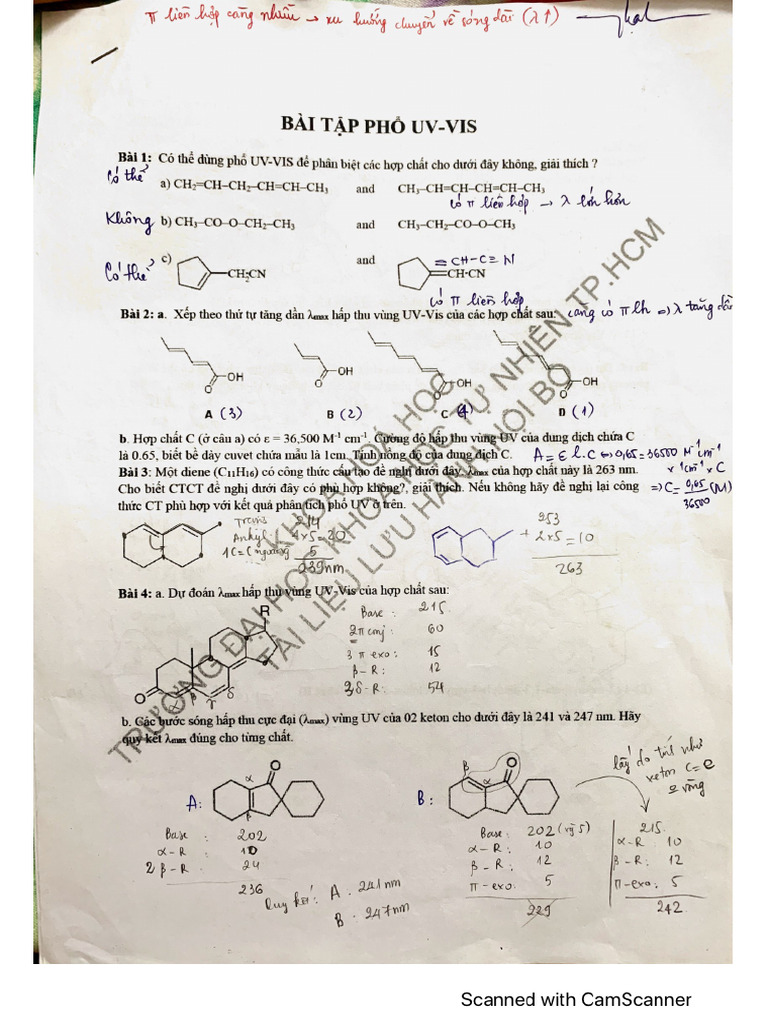 π liên hợp càng nhiều → xu hướng chuyển về sóng dài (λ↑)
BÀI TẬP PHỔ UV-VIS
Bài 1: Có thể dùng phổ UV-VIS để phân biệt các hợp chất cho dưới đây không, giải thích ?
Có thể a) CH₂=CH–CH₂–CH=CH–CH₃ and CH₃–CH=CH–CH=CH–CH₃
có π liên hợp → λ lớn hơn
Không b) CH₃–CO–O–CH₂–CH₃ and CH₃–CH₂–CO–O–CH₃
Có thể c) CH₂CN and CH-CN = CH-C≡N
có π liên hợp
Bài 2: a. Xếp theo thứ tự tăng dần λmax hấp thu vùng UV-Vis của các hợp chất sau: càng có π lh => λ tăng dần
OH O OH O OH O OH O
A (3) B (2) C (4) D (1)
b. Hợp chất C (ở câu a) có ε = 36,500 M⁻¹ cm⁻¹. Cường độ hấp thu vùng UV của dung dịch chứa C
là 0.65, biết bề dày cuvet chứa mẫu là 1cm. Tính nồng độ của dung dịch C. A = ε l.C <=> 0,65 = 36500 M⁻¹cm⁻¹
× 1cm × C
Bài 3: Một diene (C₁₁H₁₆) có công thức cấu tạo đề nghị dưới đây. λmax của hợp chất này là 263 nm.
Cho biết CTCT đề nghị dưới đây có phù hợp không?, giải thích. Nếu không hãy đề nghị lại công => C = 0,65/36500 (M)
thức CT phù hợp với kết quả phân tích phổ UV ở trên.
Trans 214
Ankyl: 4x5=20
1C=C ngoại vòng 5
239nm
253
+ 2x5=10
263
Bài 4: a. Dự đoán λmax hấp thu vùng UV-Vis của hợp chất sau:
R
O α β γ δ
Base : 215
2π conj : 60
3 π exo : 15
β-R : 12
3δ-R : 54
b. Các bước sóng hấp thu cực đại (λmax) vùng UV của 02 keton cho dưới đây là 241 và 247 nm. Hãy
quy kết λmax đúng cho từng chất.
lấy do tính như
xeton C=C
2 vòng
A: O α β
B: O α β
Base : 202
α-R : 10
2 β-R : 24
236
Quy kết: A . 241nm
B . 247nm
Base : 202 (vg 5)
α-R : 10
β-R : 12
π-exo : 5
229
215
α-R 10
β-R : 12
π-exo : 5
242
TRƯỜNG ĐẠI HỌC KHOA HỌC TỰ NHIÊN TP.HCM
KHOA HOÁ HỌC
TÀI LIỆU LƯU HÀNH NỘI BỘ
Scanned with CamScanner